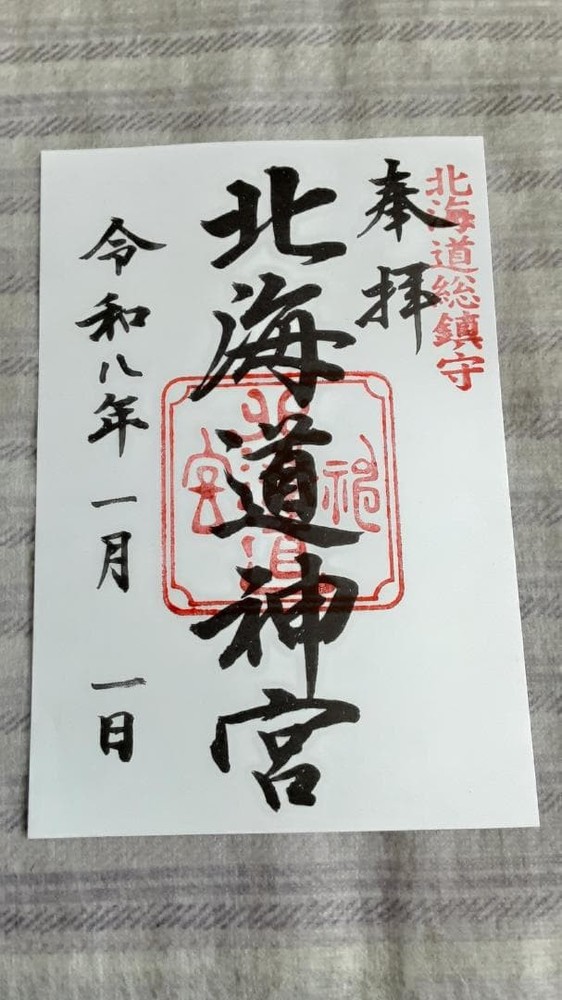 北海道総鎮守
奉拝
北海道神宮
令和八年 一月 一日